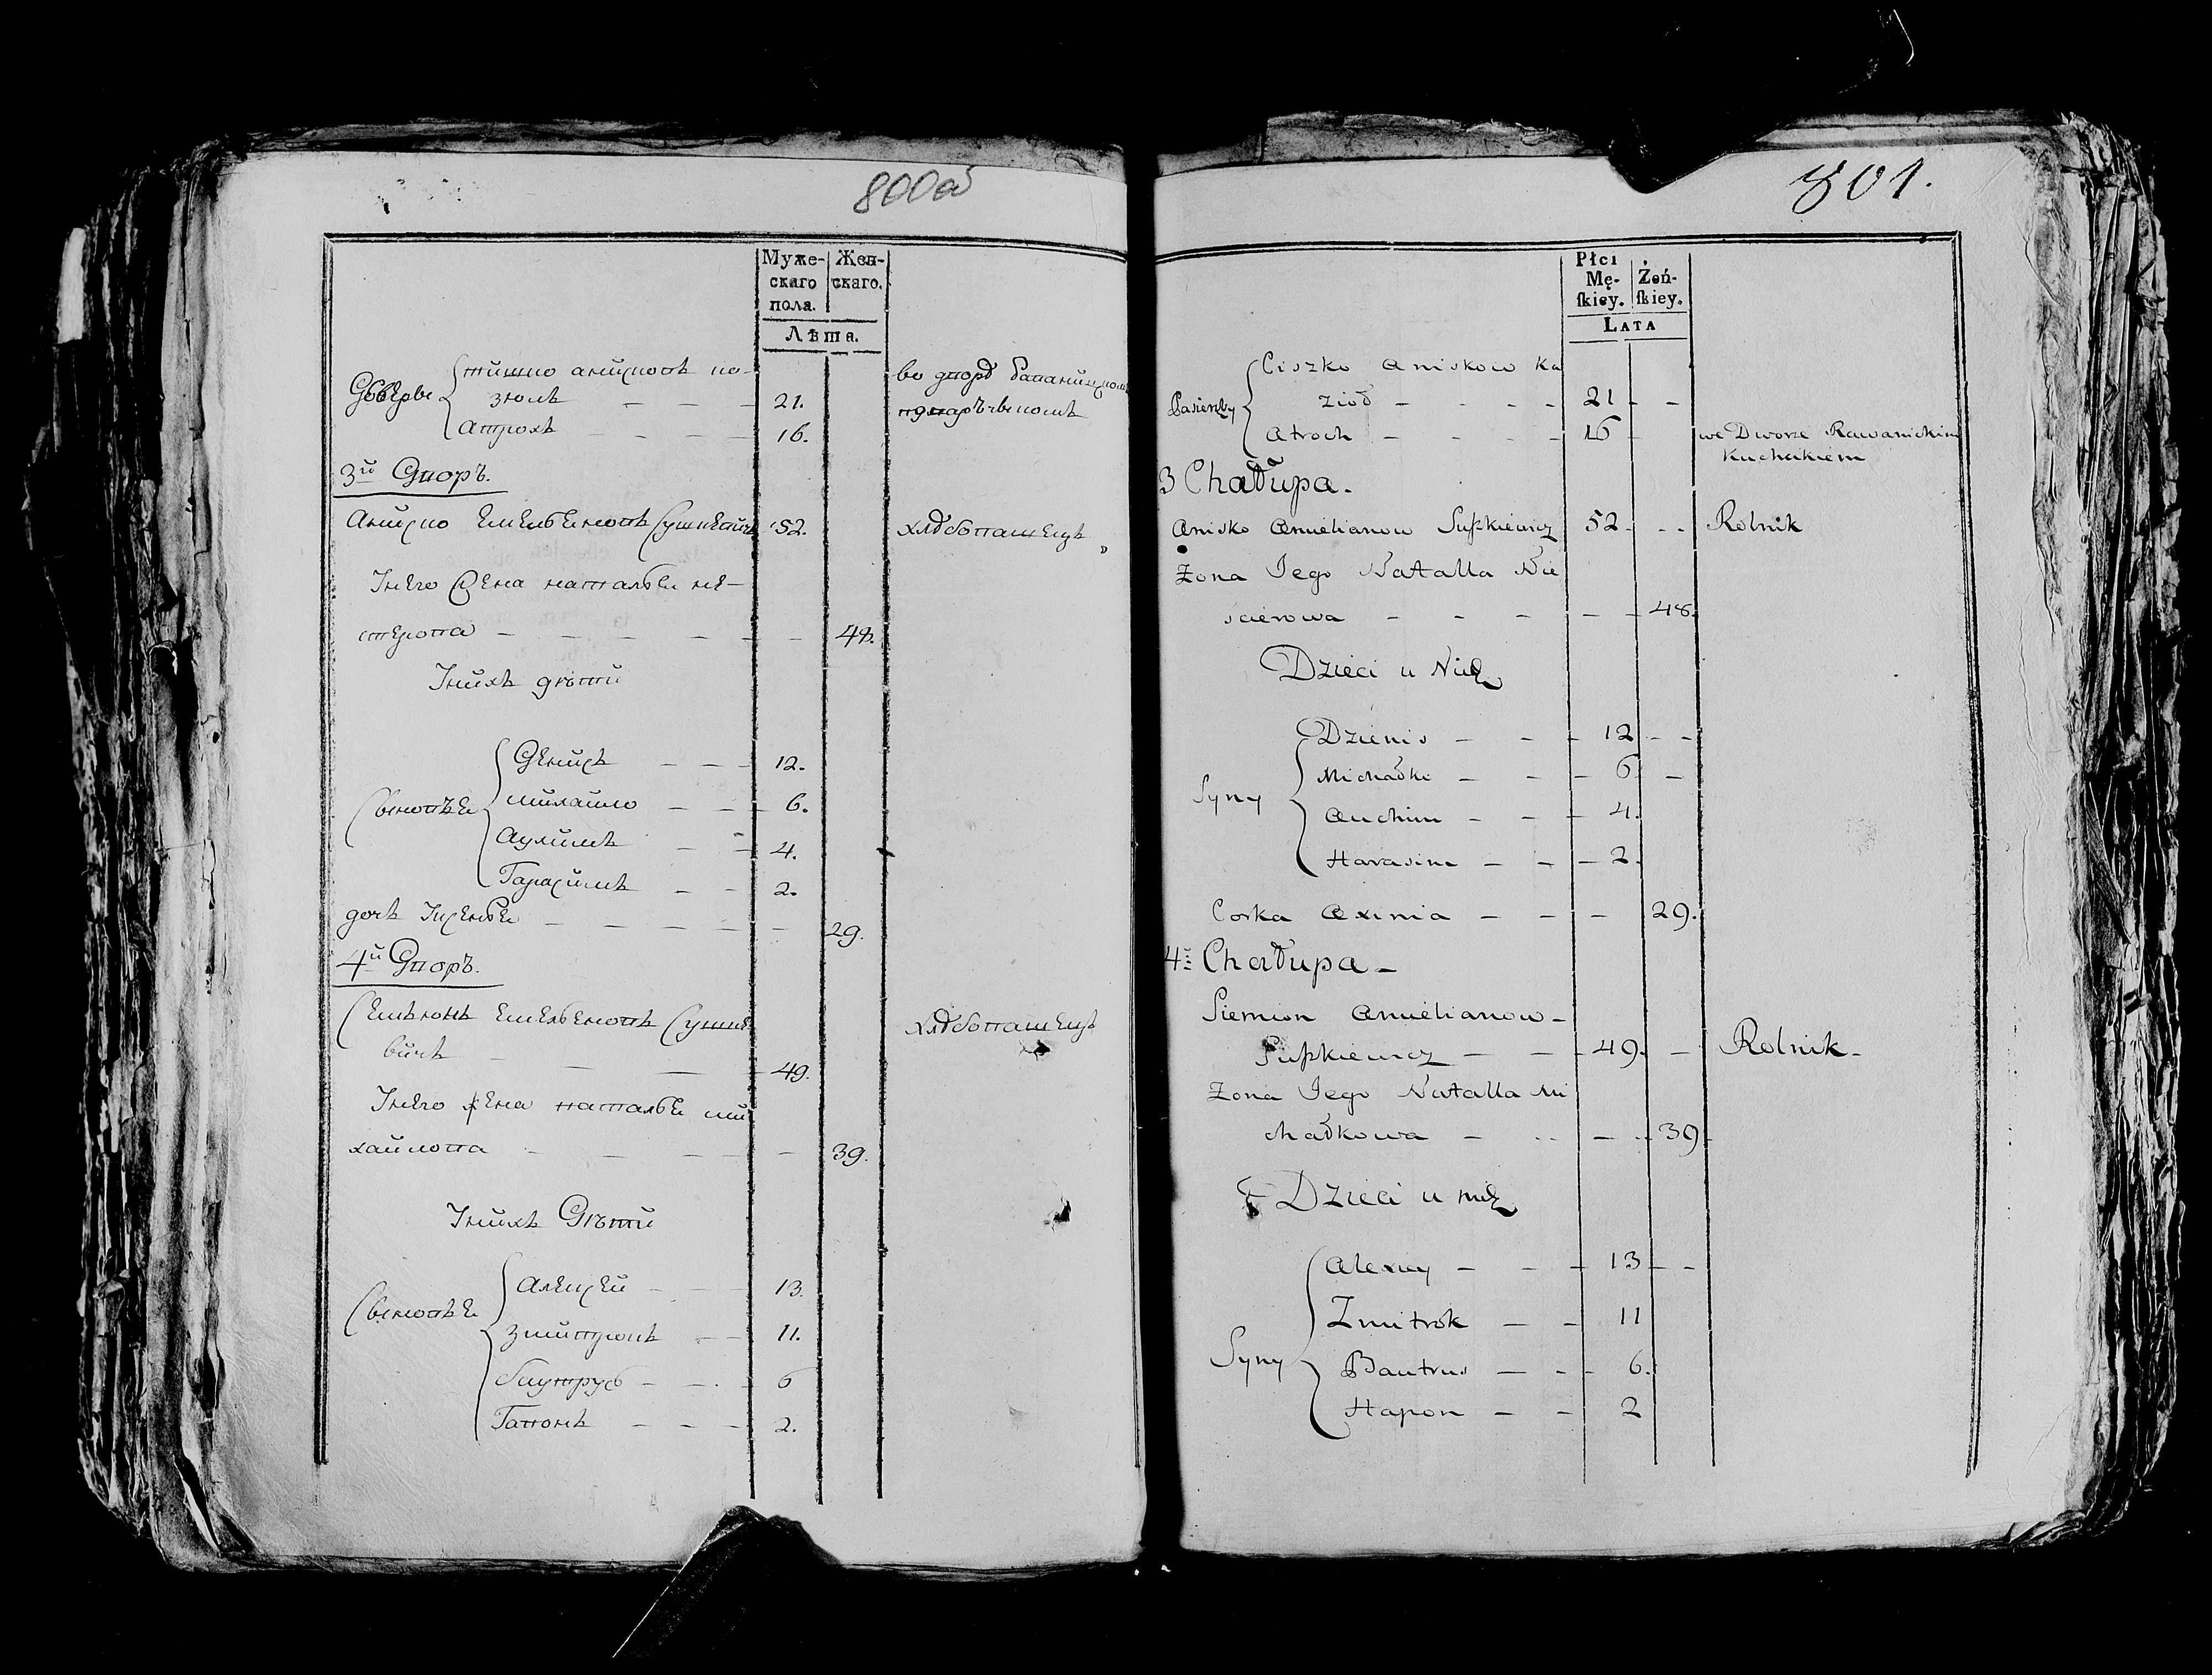 800об
Муже-
скаго
пола.
Жен-
скаго.
Лѣта.
тишко анисковъ ко-
зюлъ - - - 21.
Атрохъ - - - 16.
3й Дворъ.
Аниско Емельеновъ Сушкевичъ 52. хлѣбопашецъ
У него жена наталья не-
стерова - - - - - - 48.
У нихъ дѣти
Сыновья
Денисъ - - - 12.
михайло - - - 6.
Аухимъ - - 4.
Гарасимъ - - 2.
дочь - - - - - - 29.
4й Дворъ.
Семѣонъ Емельеновъ Сушке
вичъ - - - 49. хлѣбопашецъ
У него жена наталья ми
хайлова - - - - - 39.
У нихъ Дѣти
Сыновья
Алексей - - - 13.
змитрокъ - - 11.
баутрусь - - - 6
Гапонъ - - - 2.
801.
Płci
Mę-
ſkiey.
Żeń-
ſkiey.
LATA
Pasierby
Ciszko Aniskow Ka
zioł - - - - 21 - -
Atroch - - - - 16 - we Dworze Rawanickim
Kuchcikiem
3 Chałupa.
Anisko Amielianow Suszkiewicz 52 - - - Rolnik
Żona Jego Natalla Nie
scierowa - - - - - 48.
Dzieci u Nich
Syny
Dzienis - - - 12 - -
Michałko - - - 6 -
Auchim - - - 4.
Harasim - - - 2.
Corka Axinia - - - - 29.
4ta Chałupa -
Siemion Amielianow -
Suszkiewicz - - - 49. - Rolnik -
Żona Jego Natalla Mi
chałkowa - - - - 39
Dzieci u nich
Syny
Alexiey - - - 13 - -
Zmitrok - - - 11
Bautrus - - - 6.
Hapon - - 2